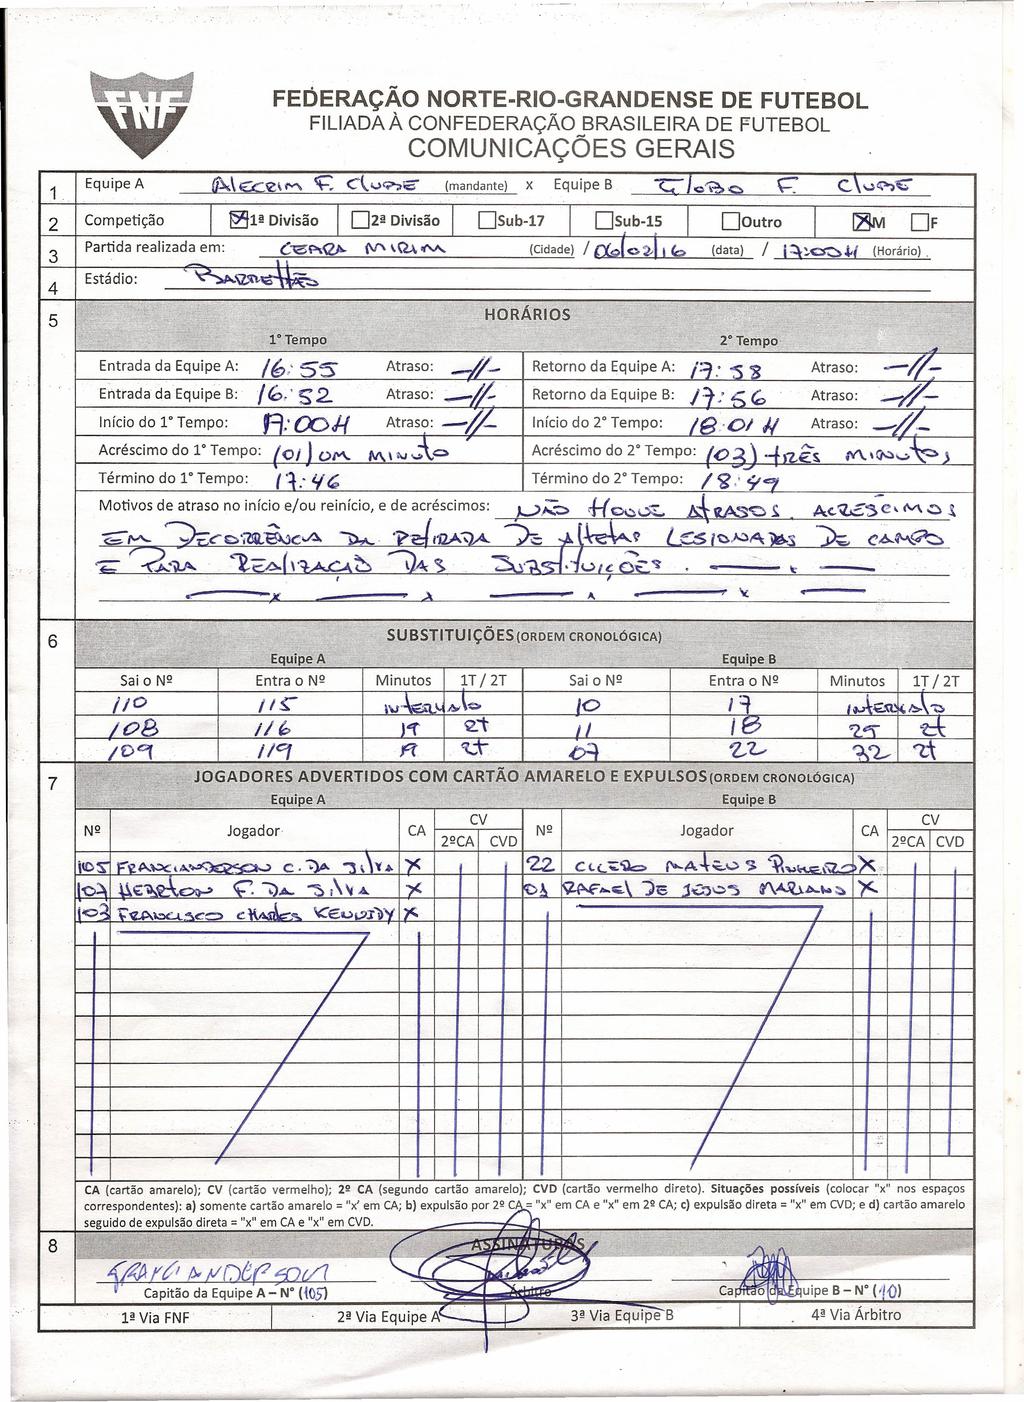 FNF
FEDERAÇÃO NORTE-RIO-GRANDENSE DE FUTEBOL
FILIADA À CONFEDERAÇÃO BRASILEIRA DE FUTEBOL
COMUNICAÇÕES GERAIS
1 Equipe A ALECRIM F. CLUBE (mandante) x Equipe B GLOBO F. CLUBE
2 Competição ☒1ª Divisão ☐2ª Divisão ☐Sub-17 ☐Sub-15 ☐Outro ☒M ☐F
3 Partida realizada em: CEARA MIRIM (Cidade) / 06/02/16 (data) / 17:00H (Horário).
4 Estádio: BARRETTÃO
5 HORÁRIOS
1º Tempo 2º Tempo
Entrada da Equipe A: 16:55 Atraso: -//- Retorno da Equipe A: 17:58 Atraso: -//-
Entrada da Equipe B: 16:52 Atraso: -//- Retorno da Equipe B: 17:56 Atraso: -//-
Início do 1º Tempo: 17:00H Atraso: -//- Início do 2º Tempo: 18:01H Atraso: -//-
Acréscimo do 1º Tempo: (01) UM MINUTO Acréscimo do 2º Tempo: (03) TRÊS MINUTOS
Término do 1º Tempo: 17:46 Término do 2º Tempo: 18:49
Motivos de atraso no início e/ou reinício, e de acréscimos: NÃO HOUVE ATRASOS. ACRÉSCIMOS
EM DECORRÊNCIA DA RETIRADA DE ATLETAS LESIONADAS DE CAMPO
E PARA REALIZAÇÃO DAS SUBSTITUIÇÕES.
6 SUBSTITUIÇÕES (ORDEM CRONOLÓGICA)
Equipe A Equipe B
Sai o Nº Entra o Nº Minutos 1T / 2T Sai o Nº Entra o Nº Minutos 1T / 2T
110 115 INTERVALO 10 17 INTERVALO
108 116 19 2T 11 18 29 2T
109 119 19 2T 07 22 32 2T
7 JOGADORES ADVERTIDOS COM CARTÃO AMARELO E EXPULSOS (ORDEM CRONOLÓGICA)
Equipe A Equipe B
Nº Jogador CA CV Nº Jogador CA CV
2ºCA CVD 2ºCA CVD
105 FRANCIANDERSON C. DA SILVA X 22 CICERO MATEUS PINHEIRO X
107 HEBRTON F. DA SILVA X 01 RAFAEL DE JESUS MARIANO X
103 FRANCISCO CHARLES KENNIDY X
CA (cartão amarelo); CV (cartão vermelho); 2º CA (segundo cartão amarelo); CVD (cartão vermelho direto). Situações possíveis (colocar "x" nos espaços
correspondentes): a) somente cartão amarelo = "x' em CA; b) expulsão por 2º CA = "x" em CA e "x" em 2º CA; c) expulsão direta = "x" em CVD; e d) cartão amarelo
seguido de expulsão direta = "x" em CA e "x" em CVD.
8 ASSINATURAS
Capitão da Equipe A – Nº (105) Árbitro Capitão da Equipe B – Nº (10)
1ª Via FNF 2ª Via Equipe A 3ª Via Equipe B 4ª Via Árbitro